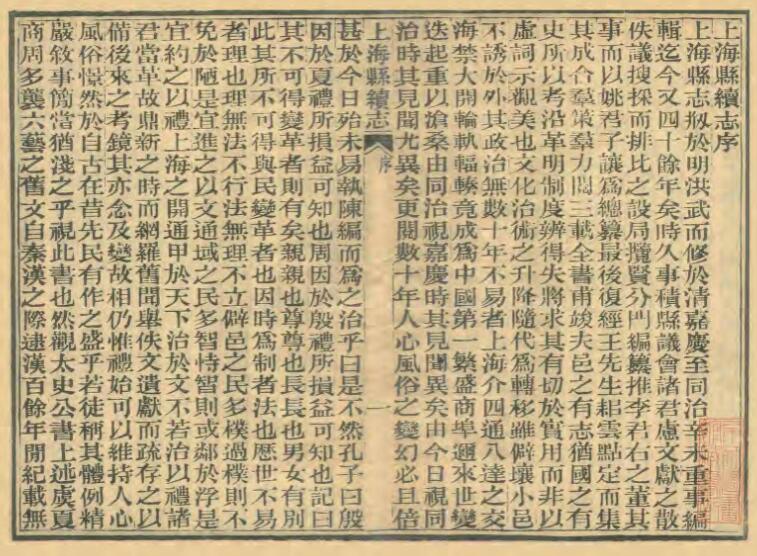 上海縣續志序
上海縣志剏於明洪武而修於清嘉慶至同治辛未重事編
輯迄今又四十餘年矣時久事積縣議會諸君慮文獻之散
佚議搜採而排比之設局攬賢分門編纂推李君右之董其
事而以姚君子讓爲總纂最後復經王先生耜雲點定而集
其成合羣策羣力閱三載全書甫竣夫邑之有志猶國之有
史所以考沿革明制度辨得失將求其有切於實用而非以
虛詞示觀美也文化治術之升降隨代爲轉移雖僻壤小邑
不誘於外其政治無數十年不易者上海介四通八達之交
海禁大開輪軌輻輳竟成爲中國第一繁盛商埠邇來世變
迭起重以滄桑由同治視嘉慶時其見聞異矣由今日視同
治時其見聞尤異矣更閱數十年人心風俗之變幻必且倍
上海縣續志
序
一
甚於今日殆未易執陳編而爲之治乎曰是不然孔子曰殷
因於夏禮所損益可知也周因於殷禮所損益可知也記曰
其不可得變革者則有矣親親也尊尊也長長也男女有別
此其所不可得與民變革者也因時爲制者法也歷世不易
者理也理無法不行法無理不立僻邑之民多樸過樸則不
免於陋是宜進之以文通域之民多智恃智則或鄰於浮是
宜約之以禮上海之開通甲於天下治於文不若治以禮諸
君當革故鼎新之時而網羅舊聞舉佚文遺獻而疏存之以
備後來之考鏡其亦念及變故相仍惟禮始可以維持人心
風俗憬然於自古在昔先民有作之盛乎若徒稱其體例精
嚴敘事簡當猶淺之乎視此書也然觀太史公書上述虞夏
商周多襲六藝之舊文自秦漢之際逮漢百餘年間紀載無